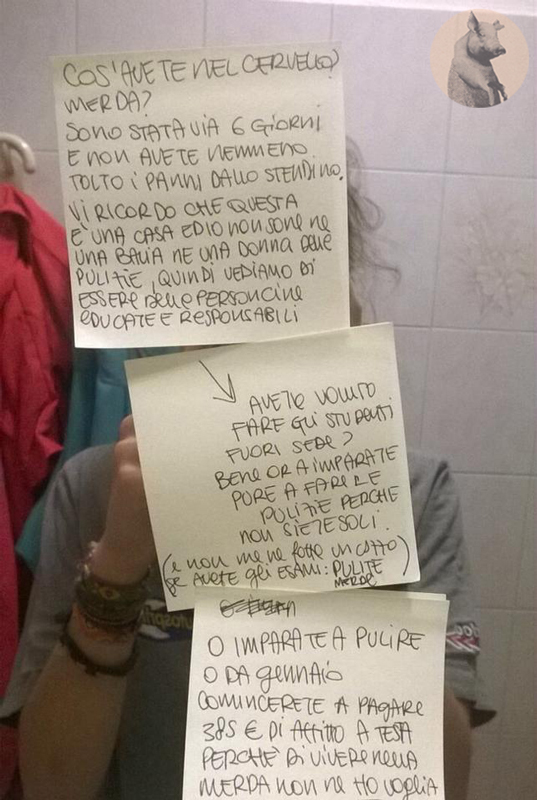 COS'AVETE NEL CERVELLO?
MERDA?
SONO STATA VIA 6 GIORNI
E NON AVETE NEMMENO
TOLTO I PANNI DALLO STENDINO.
VI RICORDO CHE QUESTA
E' UNA CASA ED IO NON SONO NE
UNA BALIA NE UNA DONNA DELLE
PULIZIE, QUINDI VEDIAMO DI
ESSERE DELLE PERSONCINE
EDUCATE E RESPONSABILI
AVETE VOLUTO
FARE GLI STUDENTI
FUORI SEDE?
BENE ORA IMPARATE
PURE A FARE LE
PULIZIE PERCHE
NON SIETE SOLI.
(e non me ne fotte un cazzo)
se AVETE gli ESAMI: PULITE
MERDE
O IMPARATE A PULIRE
O DA GENNAIO
COMINCERETE A PAGARE
385 € DI AFFITTO A TESTA
PERCHÈ DI VIVERE NELLA
MERDA NON NE HO VOGLIA